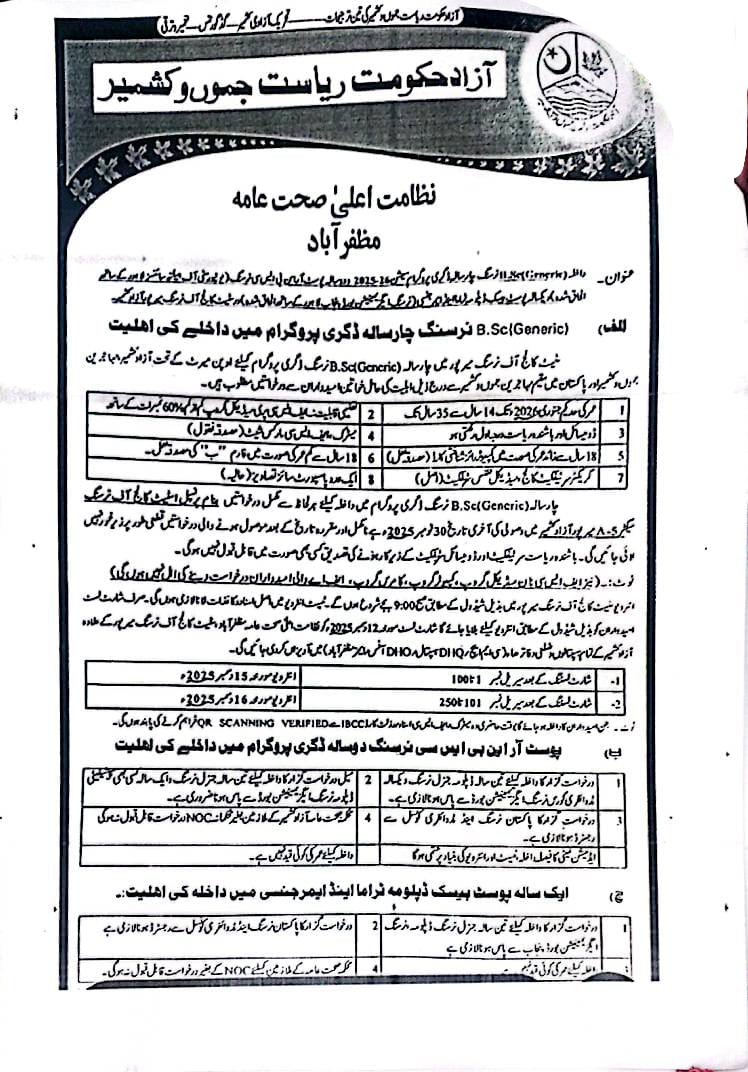 آزاد حکومت ریاست جموں و کشمیر کی تین ترجیحات ۔۔۔۔۔ تحریک آزادی کشمیر۔ گڈ گورننس۔ تعمیر و ترقی
آزاد حکومت ریاست جموں و کشمیر
نظامت اعلیٰ صحت عامہ
مظفر آباد
عنوان۔ داخلہ B.Sc(Generic) نرسنگ چار سالہ ڈگری پروگرام سیشن 26-2025 دو سالہ پوسٹ آر این بی ایس سی نرسنگ (یونیورسٹی آف ہیلتھ سائنسز لاہور کے ساتھ
الف) B.Sc(Generic) نرسنگ چار سالہ ڈگری پروگرام میں داخلے کی اہلیت
سٹیٹ کالج آف نرسنگ میرپور میں چار سالہ B.Sc(Generic) نرسنگ ڈگری پروگرام کیلئے اوپن میرٹ کے تحت آزاد کشمیر، مہاجرین
جموں و کشمیر اور پاکستان میں مقیم مہاجرین جموں و کشمیر سے درج ذیل اہلیت کی حامل خواتین امیدواران سے درخواستیں مطلوب ہیں۔
1 عمر کی حد یکم جنوری 2026 تک 14 سال سے 35 سال تک 2 تعلیمی قابلیت ایف ایس سی پری میڈیکل گروپ کم از کم 60% نمبرات کے ساتھ
3 ڈومیسائل اور باشندہ ریاست درجہ اول رکھتی ہو 4 میٹرک، ایف ایس سی مارکس شیٹ (مصدقہ نقول)
5 18 سال سے زائد عمر کی صورت میں کمپیوٹرائزڈ شناختی کارڈ (مصدقہ نقل) 6 18 سال سے کم عمر کی صورت میں فارم "ب" کی مصدقہ نقل۔
7 کریکٹر سرٹیفکیٹ کالج، میڈیکل فٹنس سرٹیفکیٹ (اصل) 8 ایک عدد پاسپورٹ سائز تصاویر (حالیہ)
چار سالہ B.Sc(Generic) نرسنگ ڈگری پروگرام میں داخلہ کیلئے ہر لحاظ سے مکمل درخواستیں بنام پرنسپل اسٹیٹ کالج آف نرسنگ
میرپور آزاد کشمیر میں وصولی کی آخری تاریخ 30 نومبر 2025ء ہے نامکمل اور مقررہ تاریخ کے بعد موصول ہونے والی درخواستیں قطعی طور پر زیر غور نہیں
لائی جائیں گی۔ باشندہ ریاست سرٹیفکیٹ اور ڈومیسائل سرٹیفکیٹ کے زیر کار ہونے کی تصدیق کسی بھی صورت میں قابل قبول نہیں ہوگی۔
نوٹ:۔ (نیز ایف ایس سی نان میڈیکل گروپ، کمپیوٹر گروپ، کامرس گروپ، ایف اے والی امیدواران درخواست دینے کی اہل نہیں ہوں گی)
انٹرویو سٹیٹ کالج آف نرسنگ میرپور میں بذیل شیڈول کے مطابق صبح 9:00 بجے شروع ہوں گے۔ انٹرویو میں اصل اسناد کا غذات لانا لازمی ہوں گی۔ صرف شارٹ لسٹ
امیدواران کو بذیل شیڈول کے مطابق انٹرویو کیلئے بلایا جائے گا شارٹ لسٹ مورخہ 12 دسمبر 2025 کو نظامت اعلیٰ صحت عامہ مظفر آباد، سٹیٹ کالج آف نرسنگ میرپور کے علاوہ
آزاد کشمیر کے تمام ہسپتالوں، ضلعی دفاتر صحت (سی ایم ایچ، DHQ ہسپتال، DHO آفس مظفر آباد) میں آویزاں کردی جائیں گی۔
1- شارٹ لسٹنگ کے بعد سیریل نمبر 1 تا 100 انٹرویو مورخہ 15 دسمبر 2025ء
2- شارٹ لسٹنگ کے بعد سیریل نمبر 101 تا 250 انٹرویو مورخہ 16 دسمبر 2025ء
نوٹ۔ جن امیدواران کا داخلہ ہو جائے گا بوقت حاضری وہ میٹرک، ایف ایس سی اسناد IBCC سے QR SCANNING VERIFIED فراہم کرنے کی پابند ہوں گی۔
ب) پوسٹ آر این بی ایس سی نرسنگ دو سالہ ڈگری پروگرام میں داخلے کی اہلیت
1 درخواست گزار کا داخلہ کیلئے تین سالہ ڈپلومہ جنرل نرسنگ، یکسالہ 2 میل درخواست گزار کا داخلہ کیلئے تین سالہ جنرل نرسنگ و ایک سالہ کسی بھی سپیشلٹی
مڈوائفری کورس نرسنگ ایگزیمینیشن بورڈ سے پاس ہونا لازمی ہے۔ ڈپلومہ نرسنگ ایگزیمینیشن بورڈ سے پاس ہونا ضروری ہے۔
3 درخواست گزار کا پاکستان نرسنگ اینڈ مڈوائفری کونسل سے 4 محکمہ صحت عامہ آزاد کشمیر کے ملازمین بغیر محکمانہ NOC درخواست قابل قبول نہ ہوگی
رجسٹرڈ ہونا لازمی ہے۔
ایڈمیشن کمیٹی کا فیصلہ داخلہ ٹیسٹ اور انٹرویو کی بنیاد پر حتمی ہوگا داخلہ کیلئے عمر کی کوئی قید نہیں ہے۔
ج) ایک سالہ پوسٹ بیسک ڈپلومہ ٹراما اینڈ ایمرجنسی میں داخلہ کی اہلیت:۔
1 درخواست گزار کا داخلہ کیلئے تین سالہ جنرل نرسنگ ڈپلومہ، نرسنگ 2 درخواست گزار کا پاکستان نرسنگ اینڈ مڈوائفری کونسل سے رجسٹرڈ ہونا لازمی ہے
ایگزیمینیشن بورڈ پنجاب سے پاس ہونا لازمی ہے
3 داخلہ کیلئے عمر کی کوئی قید نہیں ہے۔ 4 محکمہ صحت عامہ کے ملازمین کیلئے NOC کے بغیر درخواست قابل قبول نہ ہوگی۔